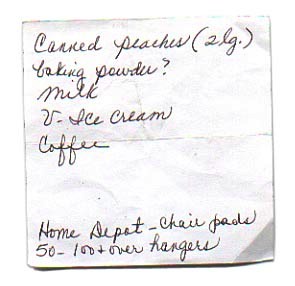 Canned peaches (2 lg.)
baking powder?
milk
V-Ice Cream
Coffee
Home Depot - Chair pads
50-100+ over hangers